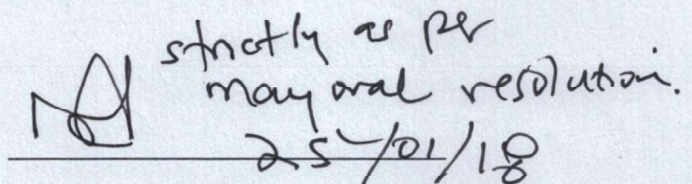 strictly as per
mayoral resolution.
25/01/18